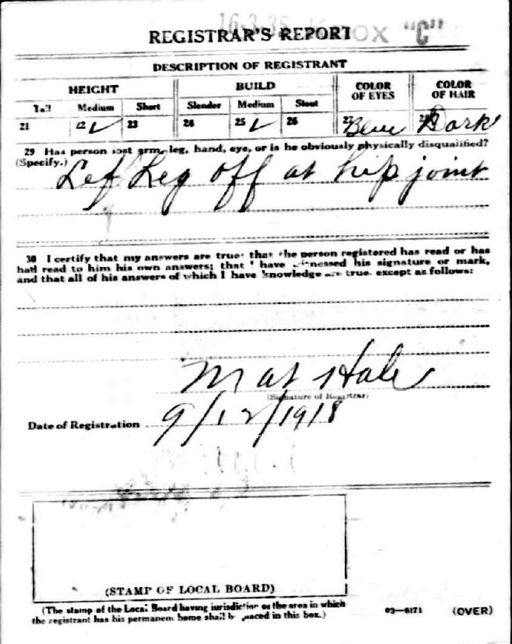 REGISTRAR'S REPORT "C"
DESCRIPTION OF REGISTRANT
HEIGHT BUILD COLOR OF EYES COLOR OF HAIR
Tall Medium Short Slender Medium Stout
21 22 ✓ 23 24 25 ✓ 26 27 Blue 28 Dark
29 Has person lost arm, leg, hand, eye, or is he obviously physically disqualified?
(Specify.)
Lef Leg off at hip joint
30 I certify that my answers are true; that the person registered has read or has
had read to him his own answers; that I have witnessed his signature or mark,
and that all of his answers of which I have knowledge are true, except as follows:
Mat Hale
(Signature of Registrar)
Date of Registration 9/12/1918
(STAMP OF LOCAL BOARD)
(The stamp of the Local Board having jurisdiction of the area in which
the registrant has his permanent home shall be placed in this box.)
03—6171 (OVER)